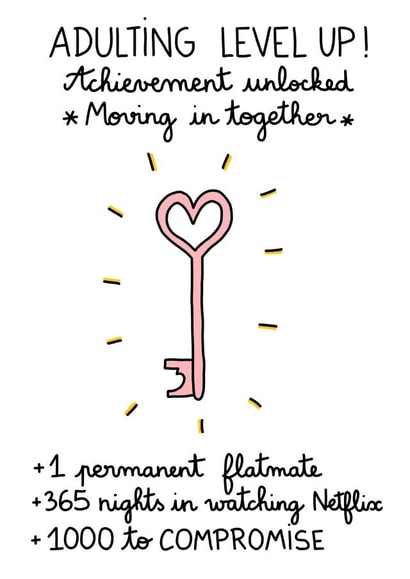 ADULTING LEVEL UP!
Achievement unlocked
* Moving in together *
+1 permanent flatmate
+365 nights in watching Netflix
+1000 to COMPROMISE